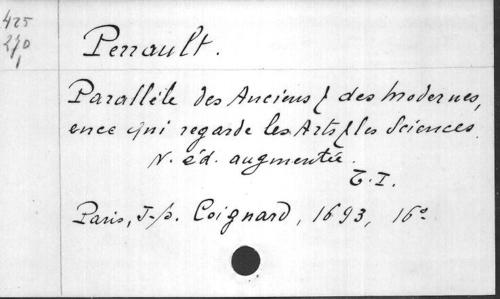 425
270
1
Perrault.
Parallèle des Anciens & des Modernes,
ence qui regarde les Arts & les Sciences.
N. éd. augmentée.
T. I.
Paris, J-B. Coignard, 1693, 16°